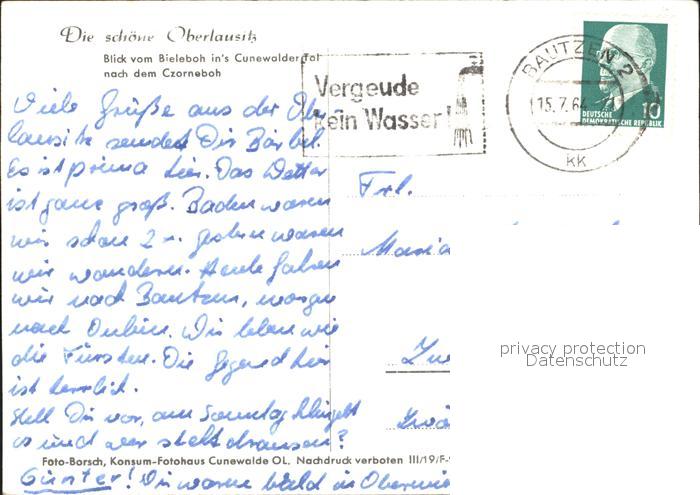 Die schöne Oberlausitz
Blick vom Bieleboh in's Cunewalder Tal
nach dem Czorneboh
Vergeude
kein Wasser!
BAUTZEN 2
15.7.64
kk
10
DEUTSCHE
DEMOKRATISCHE REPUBLIK
Viele Grüße aus der Ober
lausitz sendet Dir Bärbel.
Es ist prima hier. Das Wetter
ist ganz groß. Baden waren
wir schon 2 x. gestern waren
wir wandern. Heute fahren
wir nach Bautzen, morgen
nach Oybin. Wir leben wie
die Fürsten. Die Gegend hier
ist herrlich.
Stell Dir vor, am Sonntag klingelt
es und wer steht draussen?
Günter! Wir waren bald in
Frl.
Maria
privacy protection
Datenschutz
Foto-Borsch, Konsum-Fotohaus Cunewalde OL. Nachdruck verboten III/19/F-